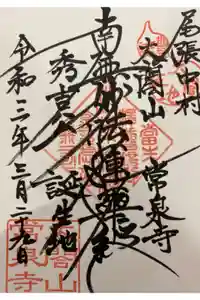 尾張中村
太閤山
常泉寺
南無妙法蓮華経
秀吉公
誕生地
令和三年三月二十九日
太閤山
常泉寺